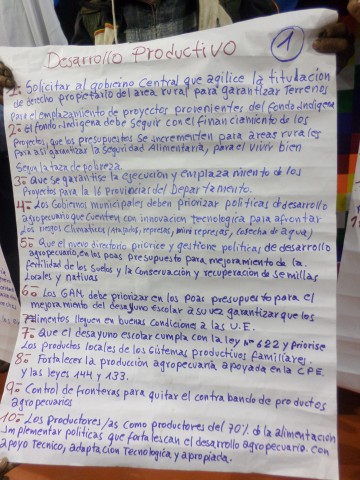 Desarrollo Productivo
1
1.- Solicitar al gobierno Central que agilice la titulación
de derecho propietario del area rural para garantizar Terrenos
para el emplazamiento de proyectos provenientes del fondo-Indigena
2.- El fondo-Indigena debe seguir con el financiamiento de los
Proyectos, que los presupuestos se incrementen para areas rurales
Para asi garantizar la Seguridad Alimentaria, para el vivir bien
Segun la taza de pobreza.
3.- Que se garantise la ejecucion y emplazamiento de los
Proyectos para la 16 Provincias del Departamento.
4.- Los Gobiernos municipales deben priorizar politicas de desarollo
agropecuario que cuenten con innovacion Tecnologica para afrontar
los riegos Climaticos (Atajados, represas, mini represas, cosecha de agua)
5.- Que el nuevo directorio priorice y gestione politicas de desarrollo
agropecuario, en los poas presupuesto para mejoramiento de la
fertilidad de los suelos y la Conservación y recuperación de semillas
Locales y nativas
6.- Los GAM, debe priorizar en los poas presupuesto para el
mejoramiento del desayuno escolar a su vez garantizar que los
alimentos lleguen en buenas condiciones a las U.E.
7.- Que el desayuno escolar cumpla con la ley Nº 622 y priorise
Los productos locales de los Sistemas productivos familiares.
8.- Fortalecer la producción agropecuaria apoyada en la C.P.E.
y las leyes 144 y 133.
9.- Control de fronteras para quitar el contrabando de productos
agropecuarios
10.- Los productores/as como productores del 70% de la alimentación
Implementar politicas que fortalescan el desarrollo agropecuario con
apoyo Tecnico, adaptación Tecnologica y apropiada.